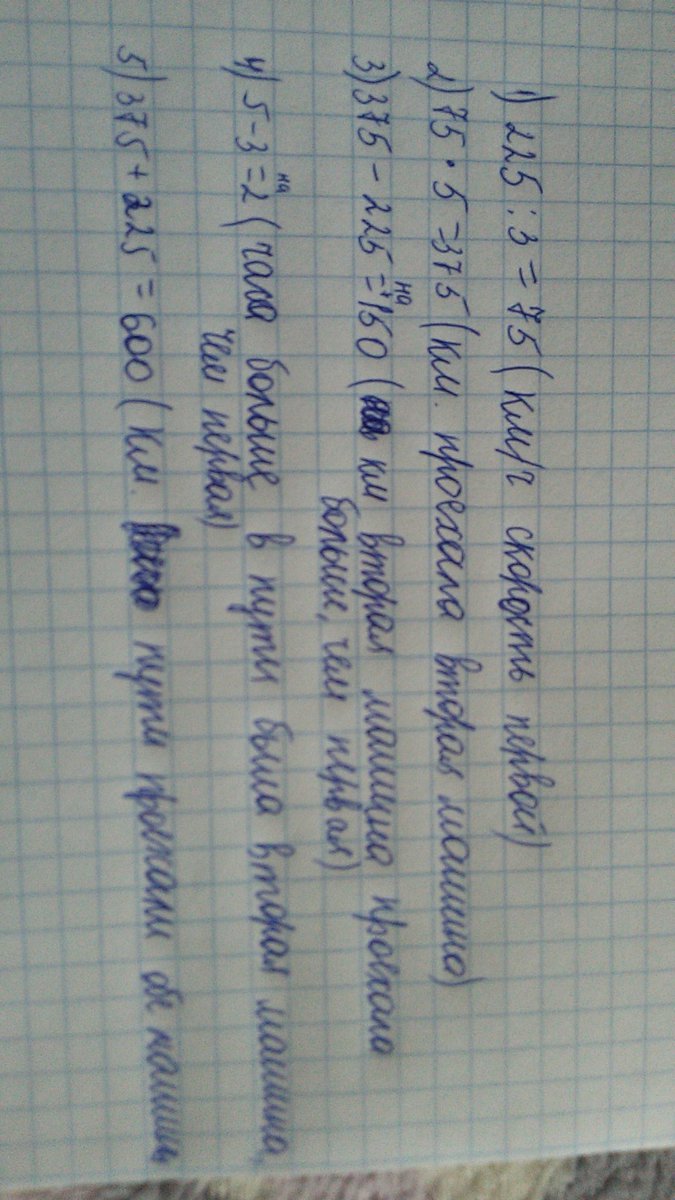 1) 225 : 3 = 75 (км/ч скорость первой)
2) 75 · 5 = 375 (км. проехала вторая машина)
3) 375 - 225 = на 150 ( км вторая машина проехала
больше, чем первая)
4) 5 - 3 = на 2 (часа больше в пути была вторая машина,
чем первая)
5) 375 + 225 = 600 (км. пути проехали обе машины